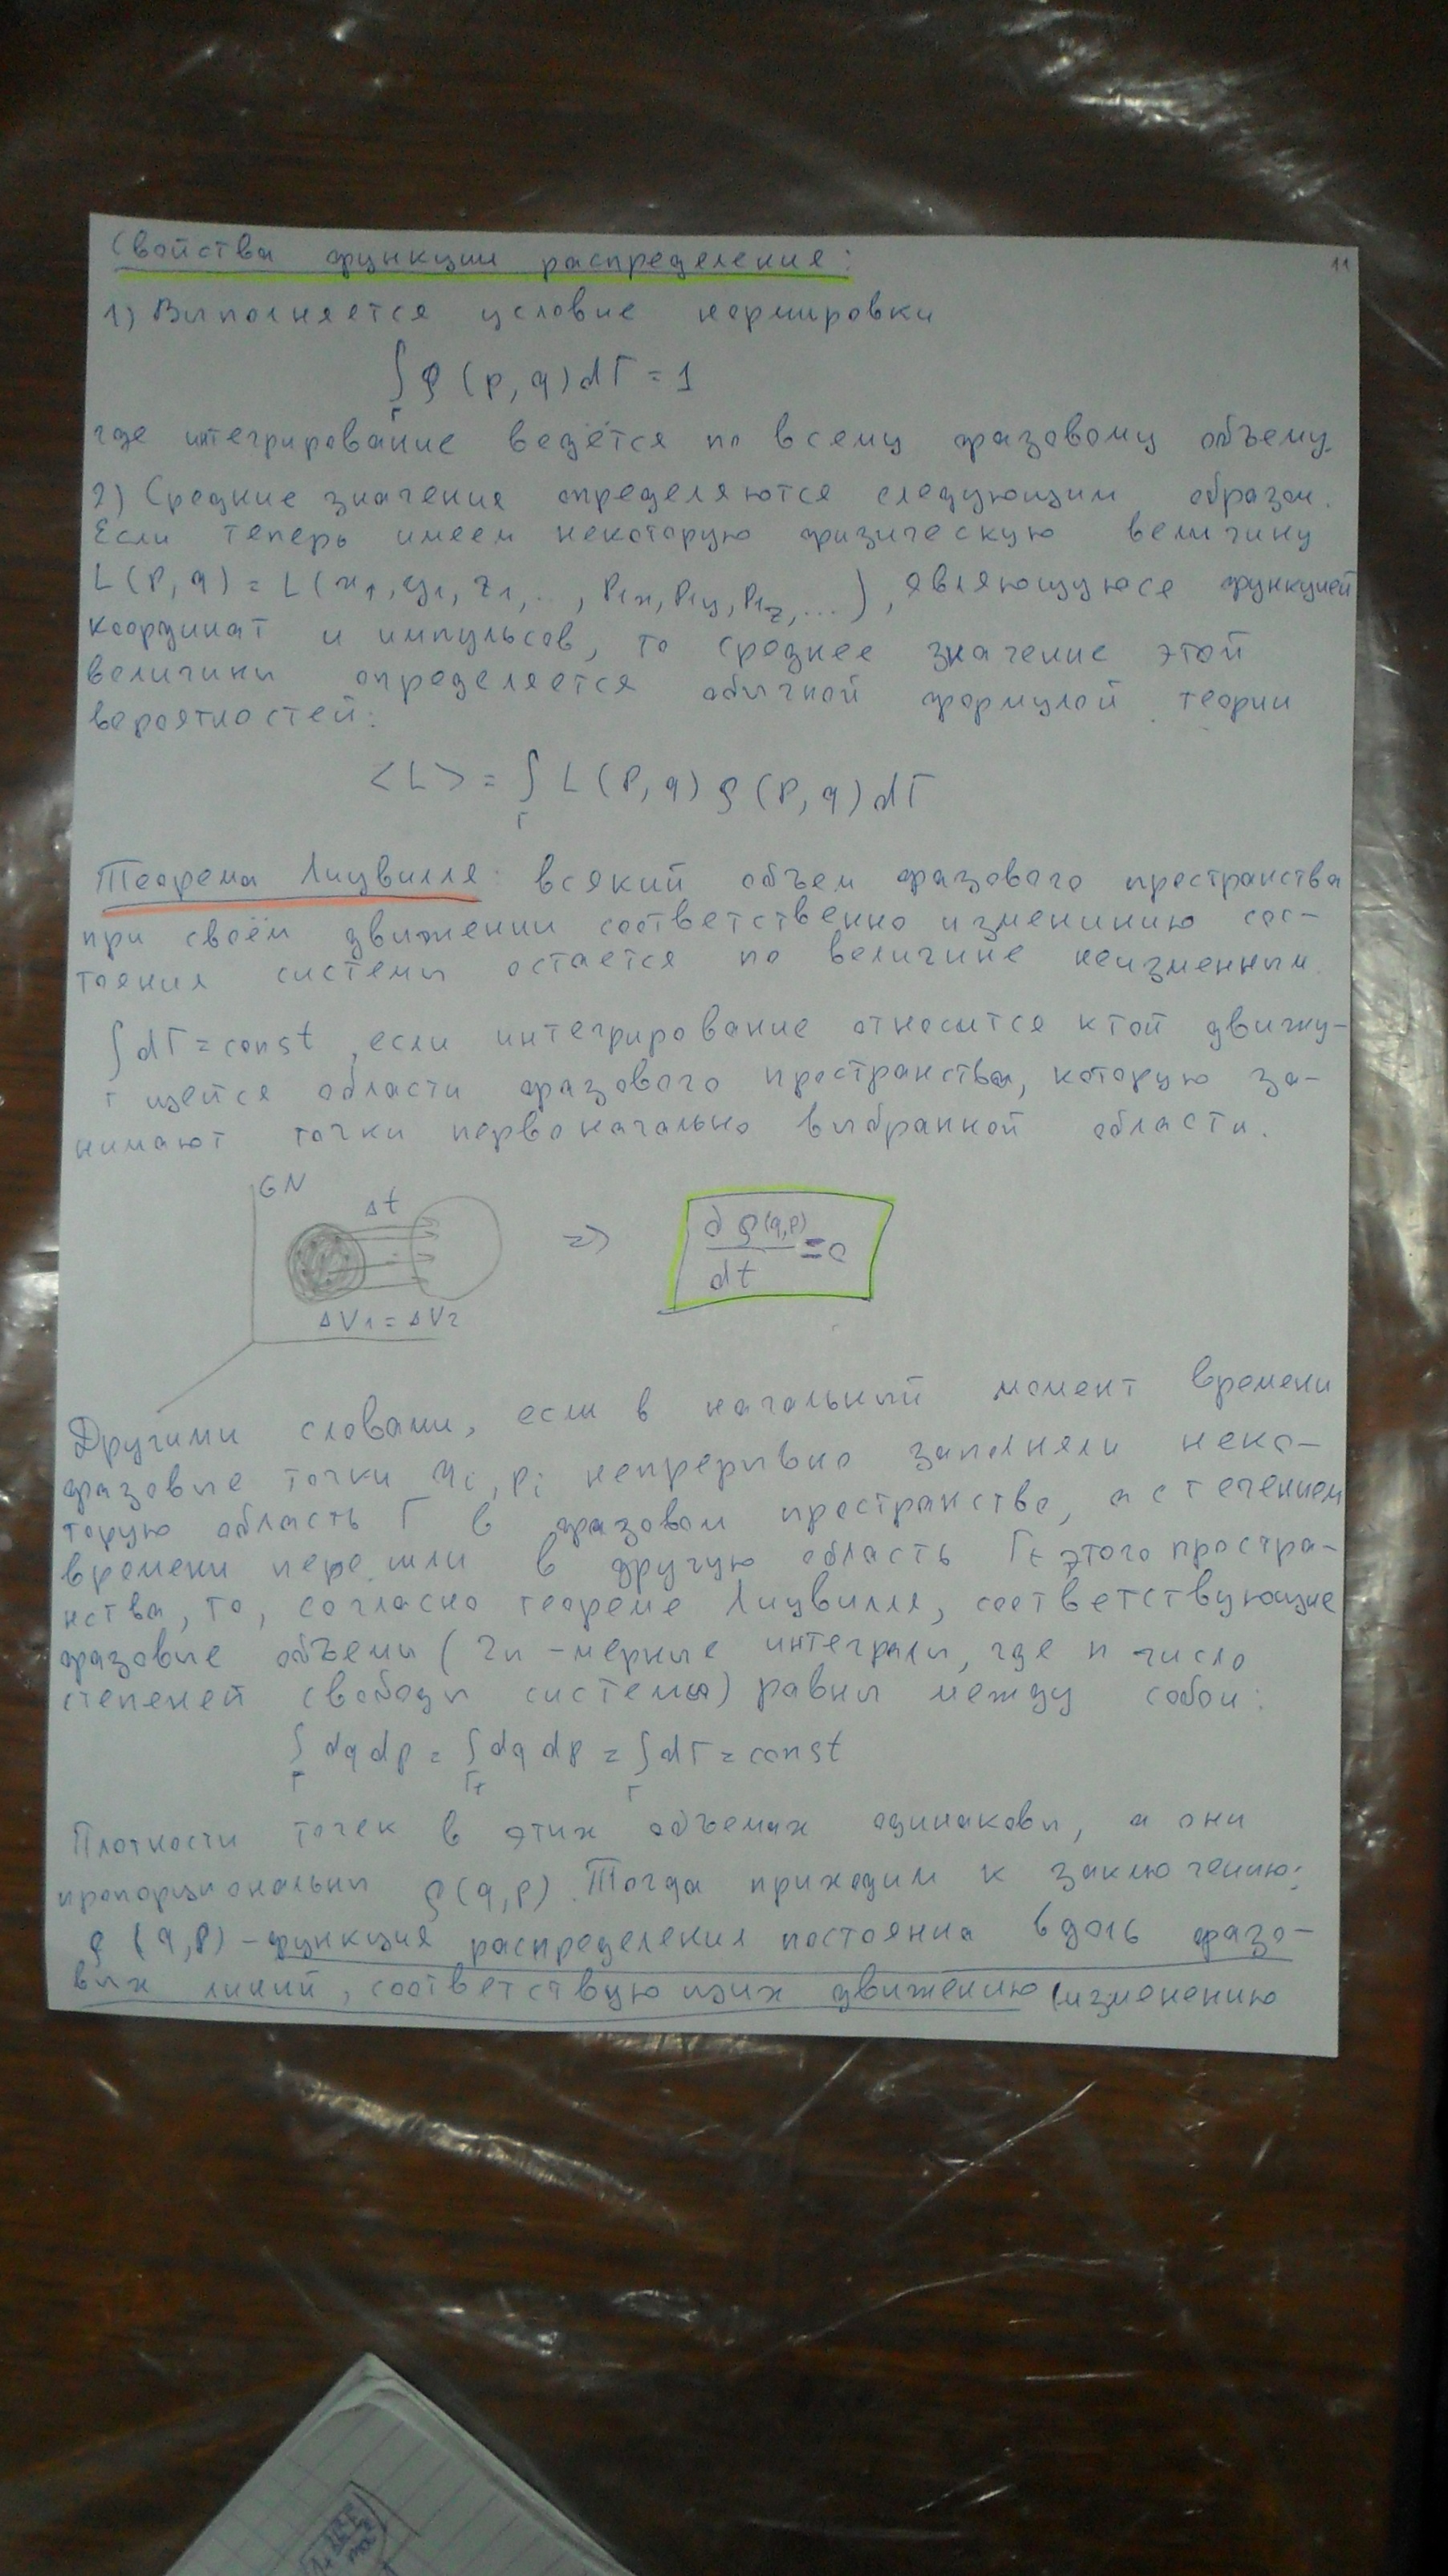 11
Свойства функции распределения:
1) Выполняется условие нормировки
∫ ρ (p, q) dΓ = 1
Γ
где интегрирование ведётся по всему фазовому объему.
2) Средние значения определяются следующим образом.
Если теперь имеем некоторую физическую величину
L(p, q) = L(x₁, y₁, z₁, ..., p₁ₓ, p₁y, p₁z, ...), являющуюся функцией
координат и импульсов, то среднее значение этой
величины определяется обычной формулой теории
вероятностей:
<L> = ∫ L(p, q) ρ (p, q) dΓ
Γ
Теорема Лиувилля: всякий объем фазового пространства
при своём движении соответственно изменинию сос-
тояния системы остается по величине неизменным
∫ dΓ = const, если интегрирование относится к той движу-
Γ щейся области фазового пространства, которую за-
нимают точки первоначально выбранной области.
6N
Δt
ΔV₁ = ΔV₂
=> dρ(q,p)/dt = 0
Другими словами, если в начальный момент времени
фазовые точки qᵢ, pᵢ непрерывно заполняли неко-
торую область Γ в фазовом пространстве, а с течением
времени перешли в другую область Γt этого простра-
нства, то, согласно теореме Лиувилля, соответствующие
фазовые объемы (2n-мерные интегралы, где n число
степеней свободы системы) равны между собой:
∫ dq dp = ∫ dq dp = ∫ dΓ = const
Γ Γt Γ
Плотности точек в этих объемах одинаковы, а они
пропорциональны ρ(q,p). Тогда приходим к заключению:
ρ (q,p) - функция распределения постоянна вдоль фазо-
вых линий, соответствующих движению (изменению